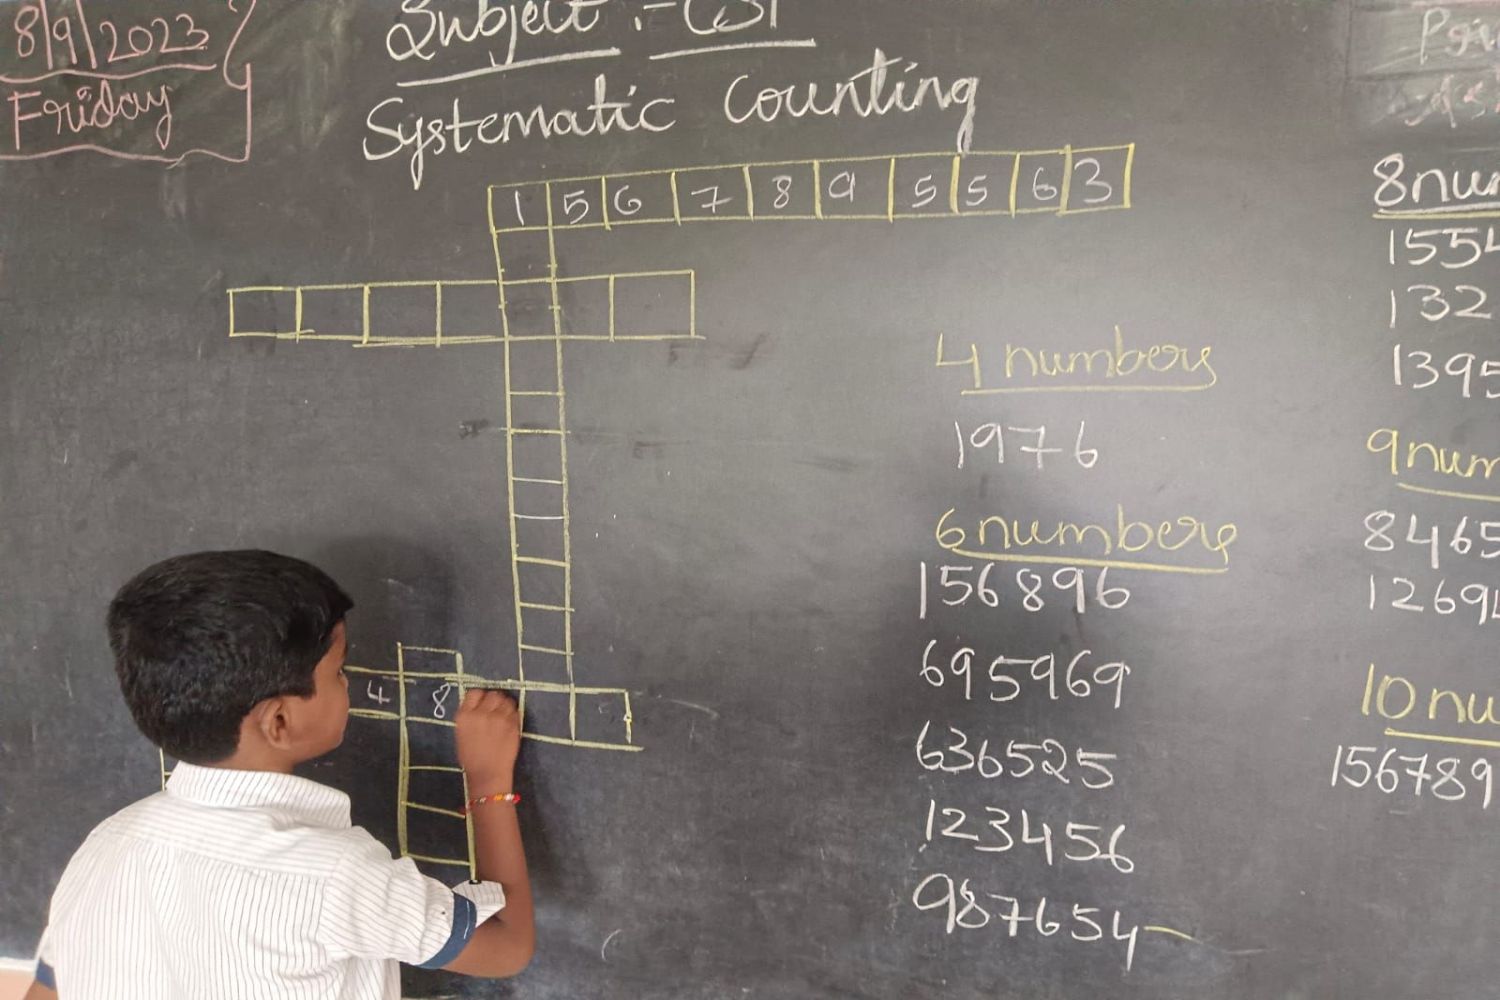 8/9/2023
Friday
Subject :- CSI
Systematic Counting
1 5 6 7 8 9 5 5 6 3
4 8
4 numbers
1976
6 numbers
156896
695969
636525
123456
987654
8 num
1554
132
1395
9 num
8465
12694
10 nu
156789